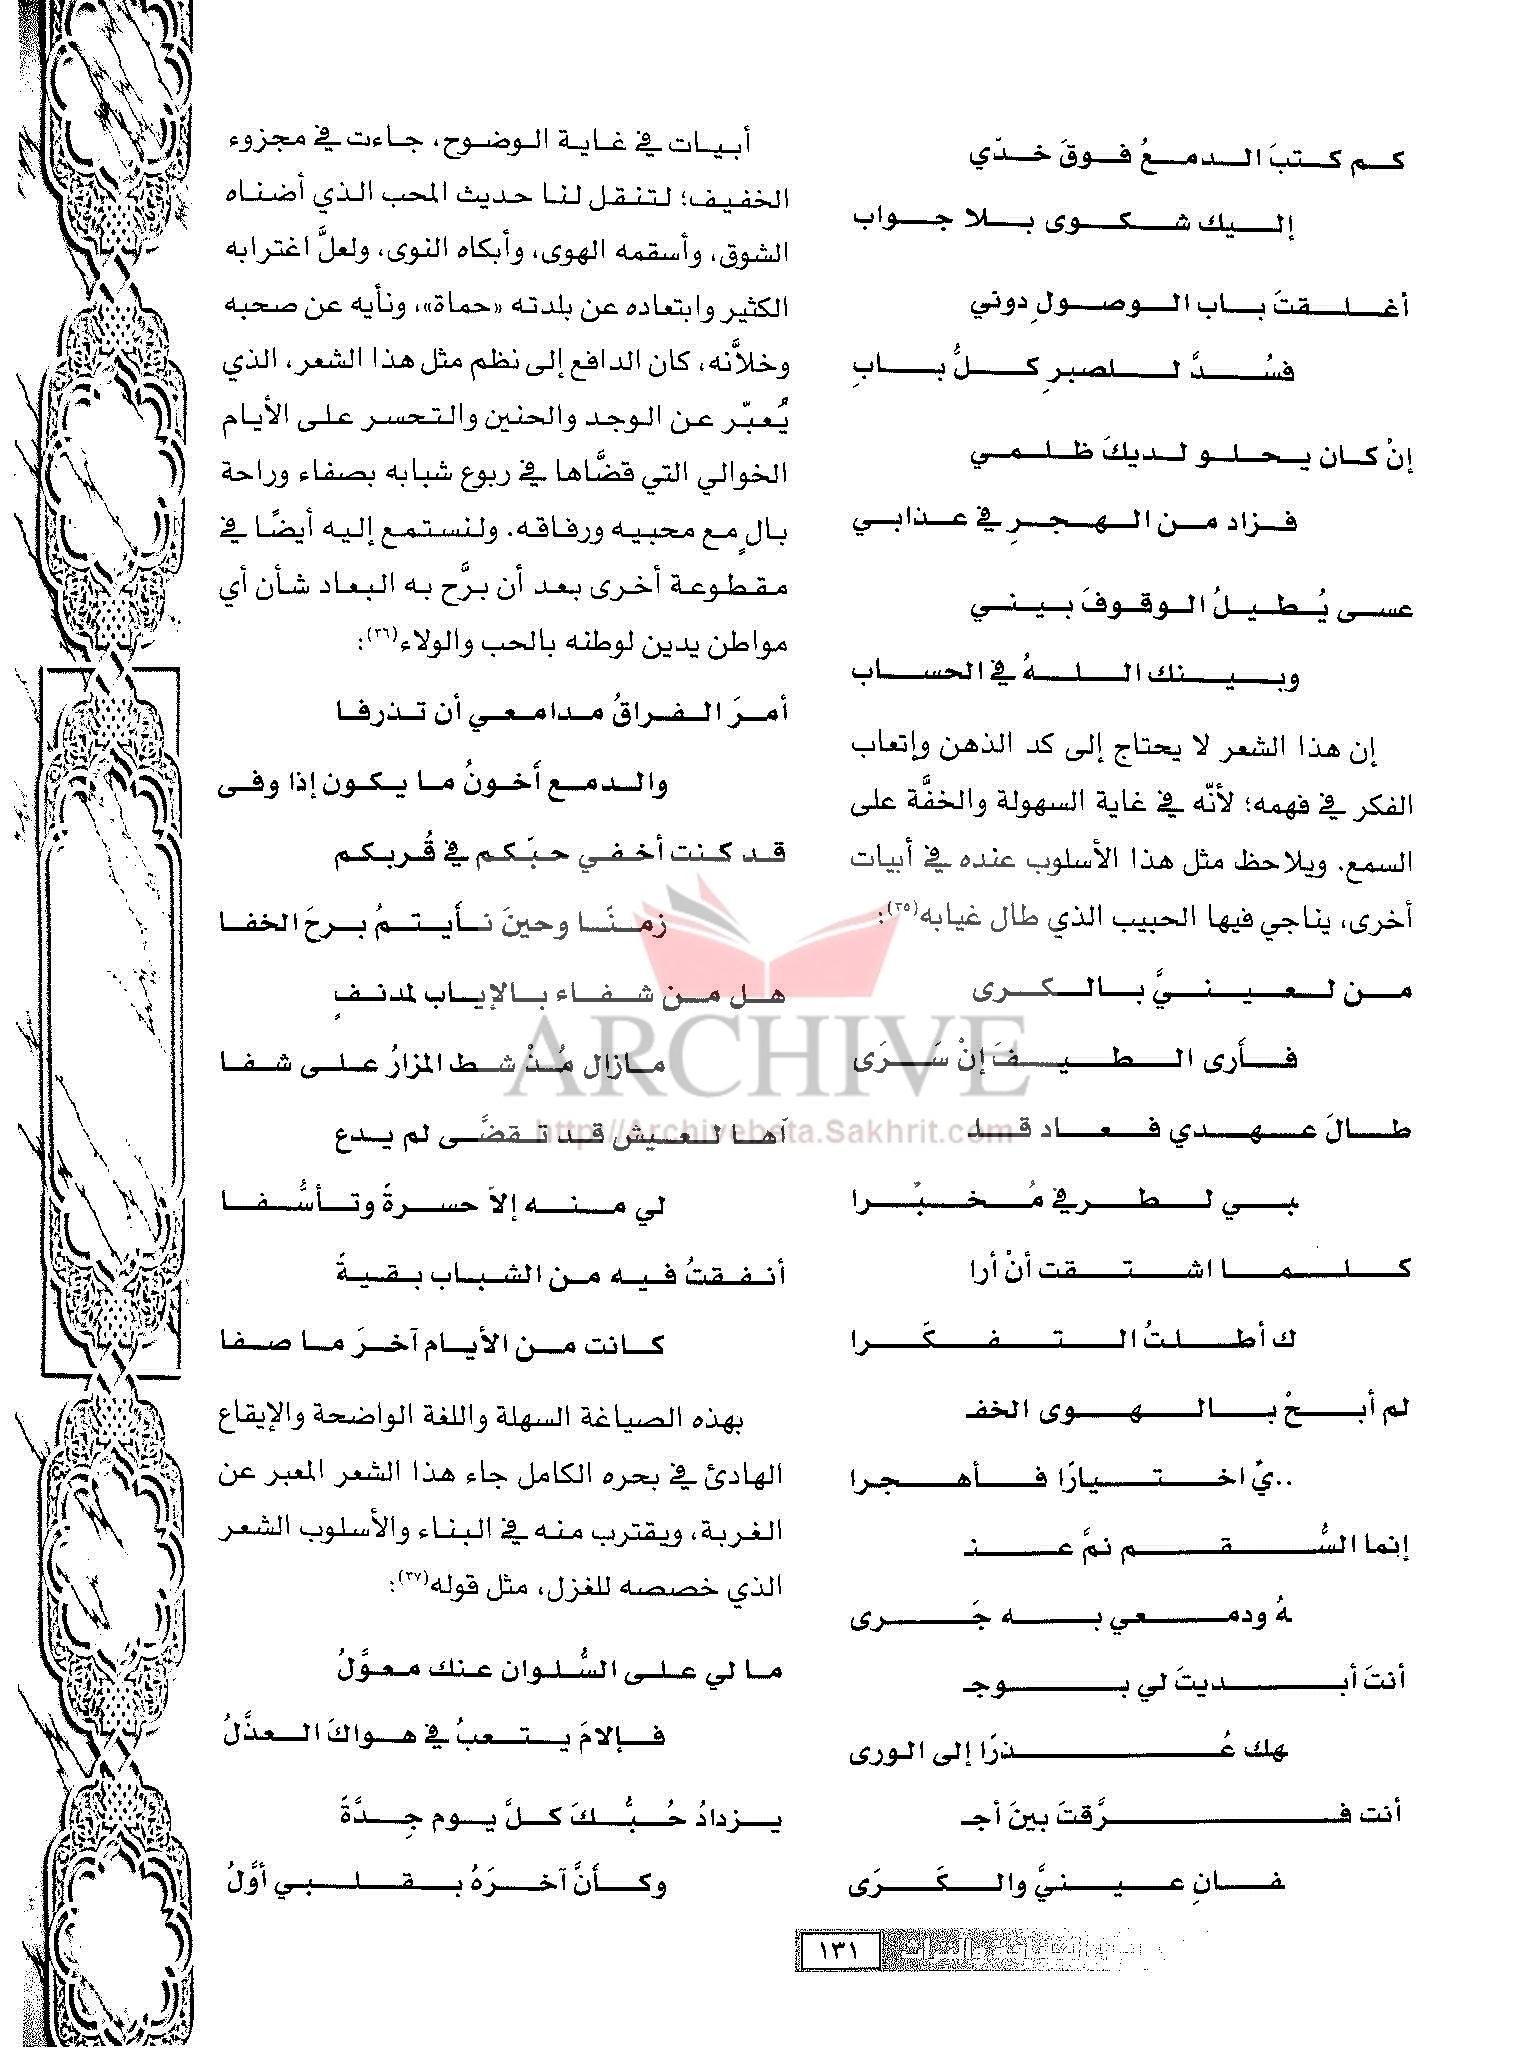 كم كتبَ الدمعُ فوقَ خدّي
إليك شكوى بلا جواب
أغلقتَ باب الوصولِ دوني
فسُدَّ للصبرِ كلُّ بابِ
إنْ كان يحلو لديكَ ظلمي
فزاد من الهجرِ في عذابي
عسى يُطيلُ الوقوفَ بيني
وبينك اللهُ في الحساب
إن هذا الشعر لا يحتاج إلى كد الذهن وإتعاب
الفكر في فهمه؛ لأنّه في غاية السهولة والخفَّة على
السمع. ويلاحظ مثل هذا الأسلوب عنده في أبيات
أخرى، يناجي فيها الحبيب الذي طال غيابه(٣٥):
من لعينيَّ بالكرى
فأَرى الطيفَ إنْ سَرَى
طالَ عهدي فعاد قد
بي لطرفي مُخبِّرا
كلما اشتقت أنْ أرا
ك أطلتُ التفكّرا
لم أبحْ بالهوى الخفـ
..يِّ اختيارًا فأهجرا
إنما السُّقم نمَّ عنـ
ـهُ ودمعي به جَرى
أنتَ أبديتَ لي بوجـ
ـهك عُذرًا إلى الورى
أنت فرَّقتَ بينَ أجـ
ـفانِ عينيَّ والكَرَى
أبيات في غاية الوضوح، جاءت في مجزوء
الخفيف؛ لتنقل لنا حديث المحب الذي أضناه
الشوق، وأسقمه الهوى، وأبكاه النوى، ولعلَّ اغترابه
الكثير وابتعاده عن بلدته «حماة»، ونأيه عن صحبه
وخلاَّنه، كان الدافع إلى نظم مثل هذا الشعر، الذي
يُعبّر عن الوجد والحنين والتحسر على الأيام
الخوالي التي قضَّاها في ربوع شبابه بصفاء وراحة
بالٍ مع محبيه ورفاقه. ولنستمع إليه أيضًا في
مقطوعة أخرى بعد أن برَّح به البعاد شأن أي
مواطن يدين لوطنه بالحب والولاء(٣٦):
أمرَ الفراقُ مدامعي أن تذرفا
والدمع أخونُ ما يكون إذا وفى
قد كنت أخفي حبّكم في قُربكم
زمنًا وحينَ نأَيتمُ برحَ الخفا
هل من شفاء بالإياب لمدنفٍ
مازال مُذْ شط المزارُ على شفا
آها لعيش قد تقضَّى لم يدع
لي منه إلاّ حسرةً وتأسُّفا
أنفقتُ فيه من الشباب بقيةً
كانت من الأيام آخرَ ما صفا
بهذه الصياغة السهلة واللغة الواضحة والإيقاع
الهادئ في بحره الكامل جاء هذا الشعر المعبر عن
الغربة، ويقترب منه في البناء والأسلوب الشعر
الذي خصصه للغزل، مثل قوله(٣٧):
ما لي على السُّلوان عنك معوَّلُ
فإلامَ يتعبُ في هواكَ العذَّلُ
يزدادُ حُبُّكَ كلَّ يوم جِدَّةً
وكأنَّ آخرَهُ بقلبي أوَّلُ
ARCHIVE
http://Archivebeta.Sakhrit.com
١٣١